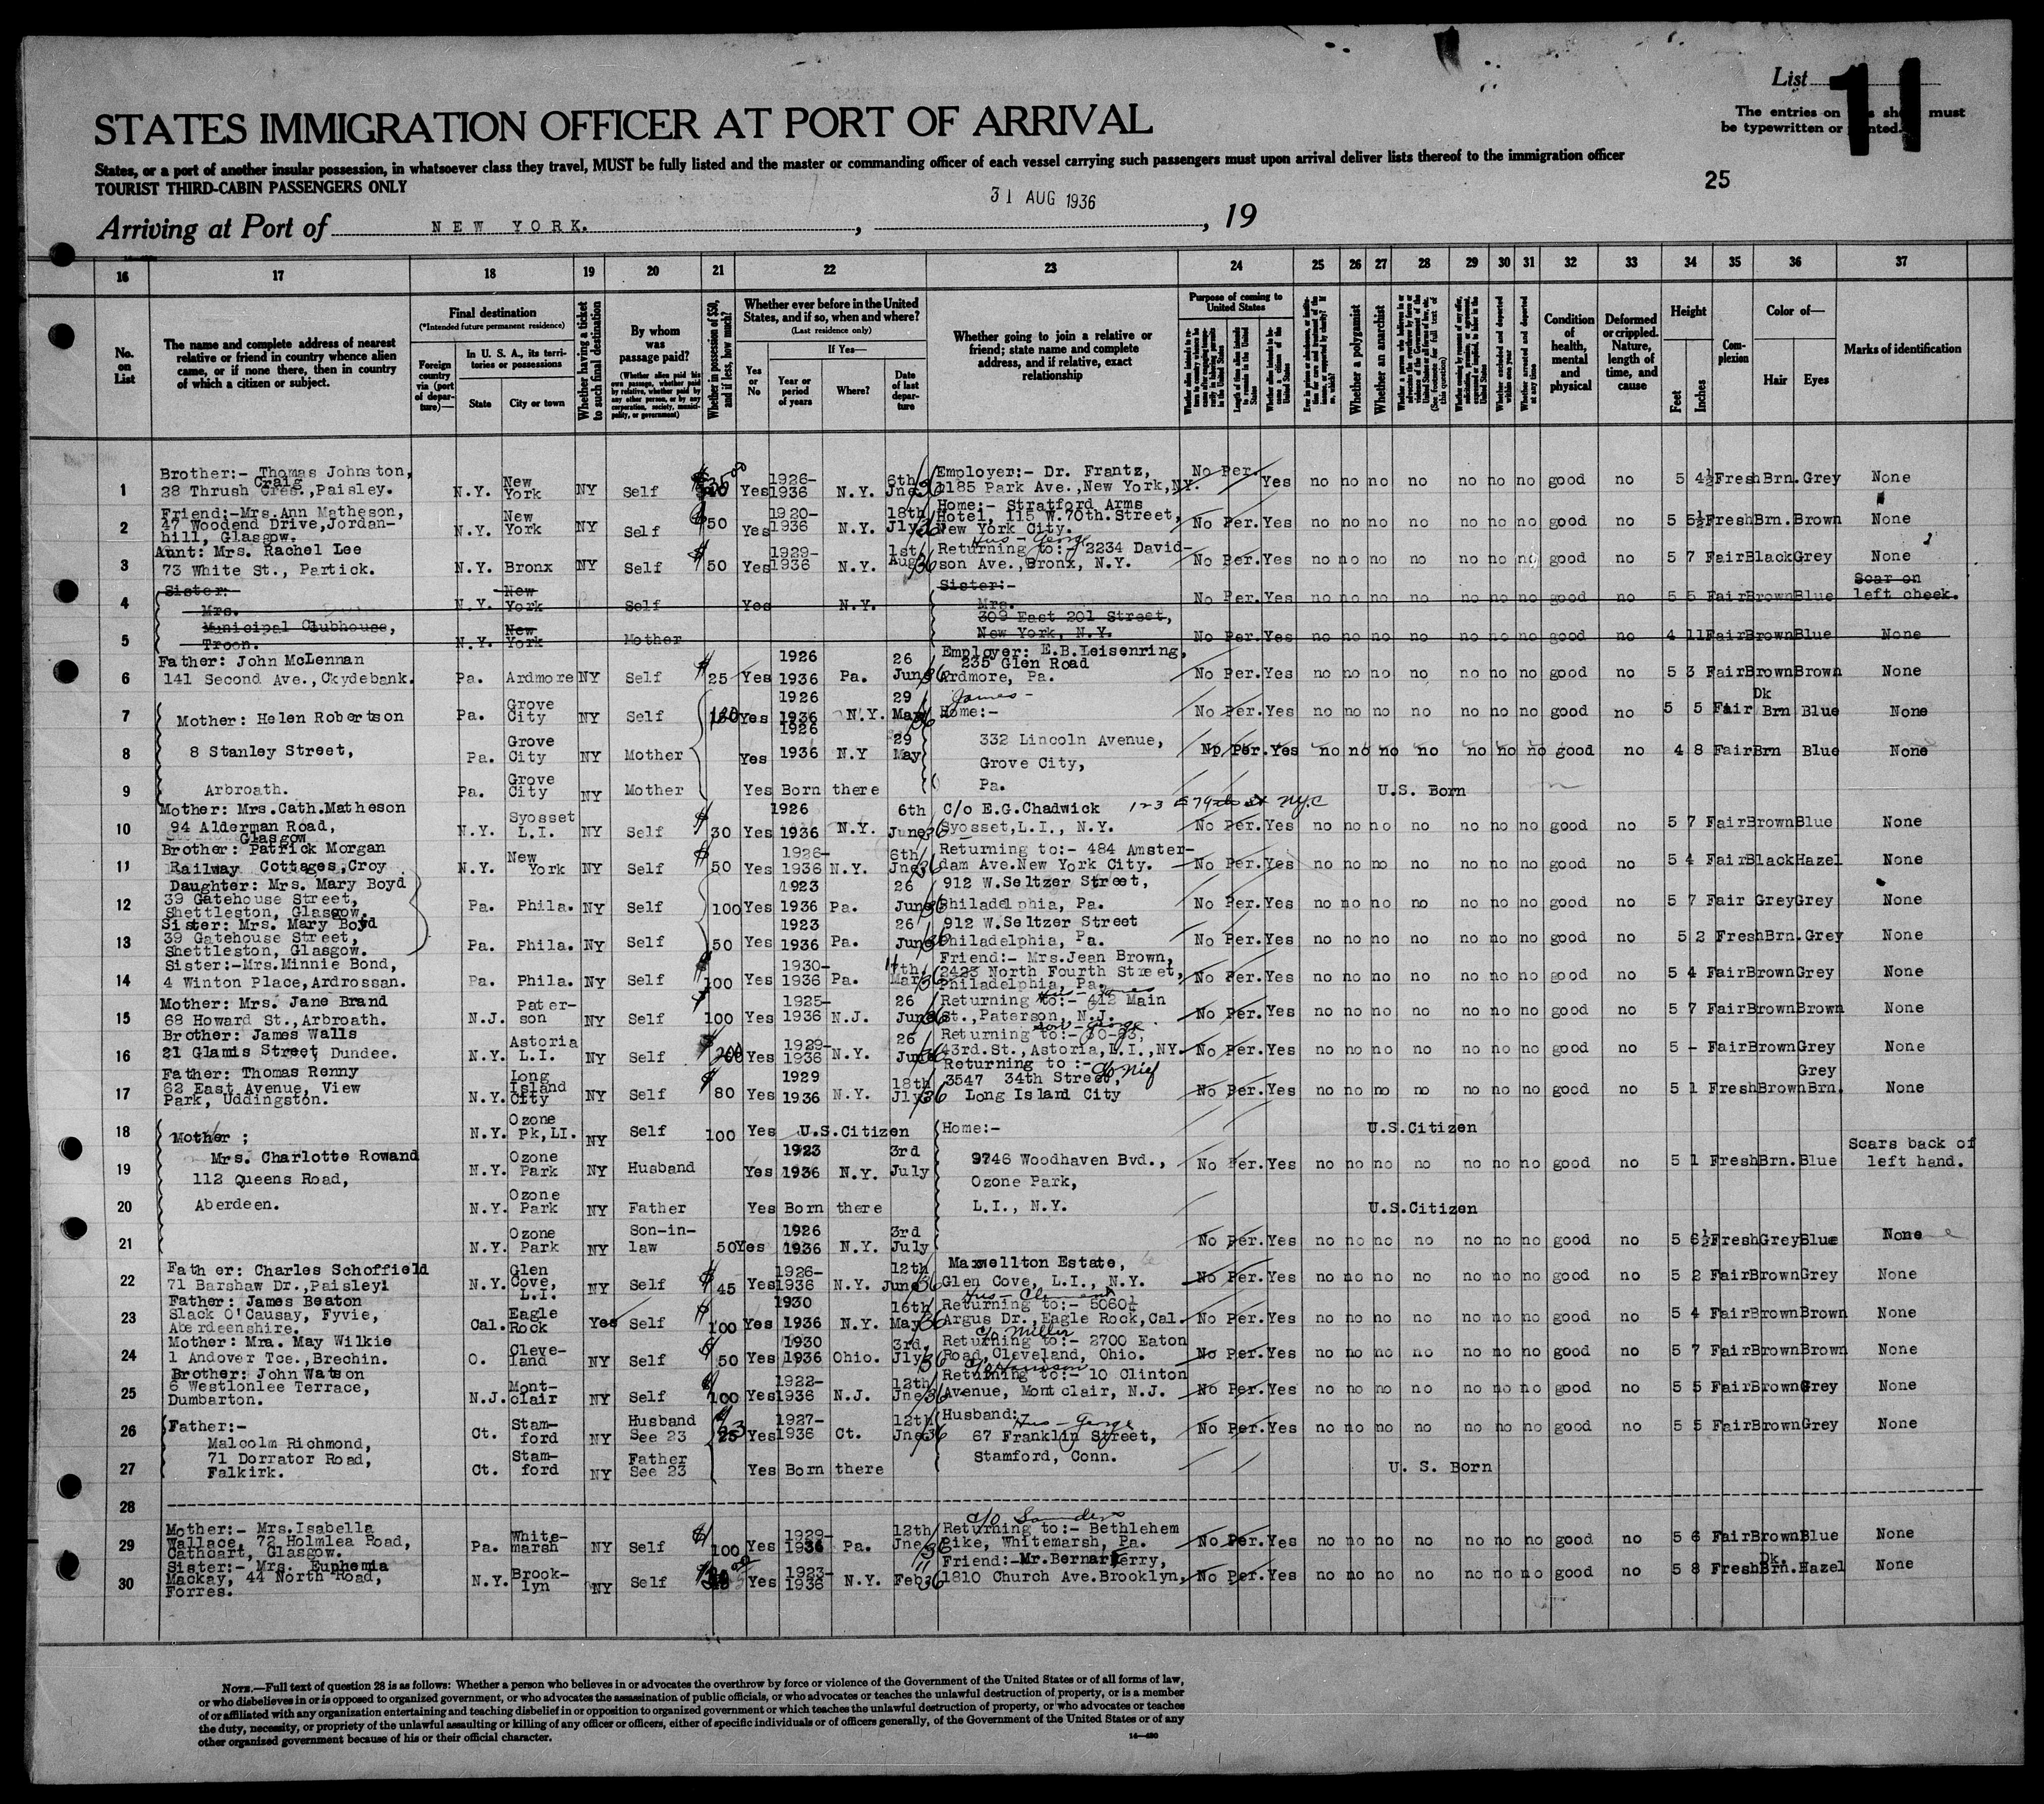 List 11
The entries on this sheet must
be typewritten or printed.
STATES IMMIGRATION OFFICER AT PORT OF ARRIVAL
States, or a port of another insular possession, in whatsoever class they travel, MUST be fully listed and the master or commanding officer of each vessel carrying such passengers must upon arrival deliver lists thereof to the immigration officer
TOURIST THIRD-CABIN PASSENGERS ONLY
25
31 AUG 1936
Arriving at Port of NEW YORK. , , 19
16 17 18 19 20 21 22 23 24 25 26 27 28 29 30 31 32 33 34 35 36 37
No. on List
The name and complete address of nearest relative or friend in country whence alien came, or if none there, then in country of which a citizen or subject.
Final destination
(*Intended future permanent residence)
Foreign country via (port of departure)—
In U. S. A., its territories or possessions
State
City or town
Whether having a ticket to such final destination
By whom was passage paid?
(Whether alien paid his own passage, whether paid by relative, whether paid by any other person, or by any corporation, society, municipality, or government)
Whether in possession of $50, and if less, how much?
Whether ever before in the United States, and if so, when and where?
(Last residence only)
Yes or No
If Yes—
Year or period of years
Where?
Date of last departure
Whether going to join a relative or friend; state name and complete address, and if relative, exact relationship
Purpose of coming to United States
Whether a polygamist
Whether an anarchist
Whether excluded and deported within one year
Whether arrested and deported at any time
Condition of health, mental and physical
Deformed or crippled. Nature, length of time, and cause
Height
Feet
Inches
Complexion
Color of—
Hair
Eyes
Marks of identification
1 Brother:- Thomas Johnston, Craig 28 Thrush Cres.,Paisley. N.Y. New York NY Self Yes 1926-1936 N.Y. 6th Jne 36 Employer:- Dr. Frantz, 1185 Park Ave.,New York,NY. No Per. Yes no no no no no no no good no 5 4½ Fresh Brn. Grey None
2 Friend:-Mrs.Ann Matheson, 47 Woodend Drive,Jordanhill, Glasgow. N.Y. New York NY Self $50 Yes 1920-1936 N.Y. 18th Jly 36 Home:- Stratford Arms Hotel, 115 W.70th.Street, New York City. No Per. Yes no no no no no no no good no 5 5½ Fresh Brn. Brown None
3 Aunt: Mrs. Rachel Lee 73 White St., Partick. N.Y. Bronx NY Self $50 Yes 1929-1936 N.Y. 1st Aug 36 Hus - George Returning to:- 2234 Davidson Ave.,Bronx, N.Y. No Per. Yes no no no no no no no good no 5 7 Fair Black Grey None
4 Sister:- Mrs. N.Y. New York Self Yes N.Y. Sister:- Mrs. 309 East 201 Street, No Per. Yes no no no no no no no good no 5 5 Fair Brown Blue Scar on left cheek.
5 Municipal Clubhouse, Troon. N.Y. New York Mother New York, N.Y. No Per. Yes no no no no no no no good no 4 11 Fair Brown Blue None
6 Father: John McLennan 141 Second Ave.,Ckydebank. Pa. Ardmore NY Self $25 Yes 1926 1936 Pa. 26 June 36 Employer: E.B.Leisenring, 235 Glen Road Ardmore, Pa. No Per. Yes no no no no no no no good no 5 3 Fair Brown Brown None
7 Mother: Helen Robertson Pa. Grove City NY Self Yes 1926 1936 N.Y. 29 May 36 James - Home:- No Per. Yes no no no no no no no good no 5 5 Fair Dk Brn Blue None
8 8 Stanley Street, Pa. Grove City NY Mother Yes 1926 1936 N.Y 29 May 332 Lincoln Avenue, Grove City, No Per. Yes no no no no no no no good no 4 8 Fair Brn Blue None
9 Arbroath. Pa. Grove City NY Mother Yes Born there Pa. U.S. Born
10 Mother: Mrs.Cath.Matheson 94 Alderman Road, Glasgow N.Y. Syosset L.I. NY Self $30 Yes 1926 1936 N.Y. 6th June 36 C/o E.G.Chadwick 123 E 79th St NYC Syosset,L.I., N.Y. No Per. Yes no no no no no no no good no 5 7 Fair Brown Blue None
11 Brother: Patrick Morgan Railway Cottages,Croy N.Y. New York NY Self $50 Yes 1926-1936 N.Y. 6th Jne 36 Returning to:- 484 Amsterdam Ave.New York City. No Per. Yes no no no no no no no good no 5 4 Fair Black Hazel None
12 Daughter: Mrs. Mary Boyd 39 Gatehouse Street, Shettleston, Glasgow. Pa. Phila. NY Self 100 Yes 1923 1936 Pa. 26 June 36 912 W.Seltzer Street, Philadelphia, Pa. No Per. Yes no no no no no no no good no 5 7 Fair Grey Grey None
13 Sister: Mrs. Mary Boyd 39 Gatehouse Street, Shettleston, Glasgow. Pa. Phila. NY Self 50 Yes 1923 1936 Pa. 26 June 36 912 W.Seltzer Street Philadelphia, Pa. No Per. Yes no no no no no no no good no 5 2 Fresh Brn. Grey None
14 Sister:-Mrs.Minnie Bond, 4 Winton Place,Ardrossan. Pa. Phila. NY Self $100 Yes 1930-1936 Pa. Mar 36 Friend:- Mrs.Jean Brown, 2423 North Fourth Street, Philadelphia, Pa. No Per. Yes no no no no no no no good no 5 4 Fair Brown Grey None
15 Mother: Mrs. Jane Brand 68 Howard St.,Arbroath. N.J. Paterson NY Self $100 Yes 1925-1936 N.J. 26 June 36 Hus - James Returning to:- 412 Main St.,Paterson, N.J. No Per. Yes no no no no no no no good no 5 7 Fair Brown Brown None
16 Brother: James Walls 21 Glamis Street, Dundee. N.Y. Astoria L.I. NY Self $200 Yes 1929-1936 N.Y. 26 June 36 George Returning to:- 43rd.St.,Astoria,L.I.,NY. No Per. Yes no no no no no no no good no 5 - Fair Brown Grey None
17 Father: Thomas Renny 62 East Avenue, View Park, Uddingston. N.Y. Long Island City NY Self $80 Yes 1929 1936 N.Y. 18th Jly 36 Returning to :- 3547 34th Street, Long Island City No Per. Yes no no no no no no no good no 5 1 Fresh Brown Grey Brn. None
18 Mother ; N.Y. Ozone Pk,LI. NY Self 100 Yes U.S.Citizen Home:- U.S.Citizen
19 Mrs. Charlotte Rowand 112 Queens Road, N.Y. Ozone Park NY Husband Yes 1923 1936 N.Y. 3rd July 9746 Woodhaven Bvd., Ozone Park, No Per. Yes no no no no no no no good no 5 1 Fresh Brn. Blue Scars back of left hand.
20 Aberdeen. N.Y. Ozone Park NY Father Yes Born there L.I., N.Y. U.S.Citizen
21 N.Y. Ozone Park NY Son-in-law 50 Yes 1926 1936 N.Y. 3rd July No Per. Yes no no no no no no no good no 5 6½ Fresh Grey Blue None
22 Father: Charles Schoffield 71 Barshaw Dr.,Paisley1 N.Y. Glen Cove, L.I. NY Self $45 Yes 1926-1936 N.Y. 12th June 36 Maxwellton Estate, Glen Cove, L.I., N.Y. No Per. Yes no no no no no no no good no 5 2 Fair Brown Grey None
23 Father: James Beaton Slack O'Causay, Fyvie, Aberdeenshire. Cal. Eagle Rock Yes Self $100 Yes 1930 1936 N.Y. 16th May 36 Hus - Clement Returning to:- 5060½ Argus Dr.,Eagle Rock,Cal. No Per. Yes no no no no no no no good no 5 4 Fair Brown Brown None
24 Mother: Mra. May Wilkie 1 Andover Tce.,Brechin. O. Cleveland NY Self $50 Yes 1930 1936 Ohio. 3rd. Jly 36 c/o Miller Returning to:- 2700 Eaton Road,Cleveland, Ohio. No Per. Yes no no no no no no no good no 5 7 Fair Brown Brown None
25 Brother: John Watson 6 Westlonlee Terrace, Dumbarton. N.J. Montclair NY Self $100 Yes 1922-1936 N.J. 12th Jne 36 c/o Harrison Returning to:- 10 Clinton Avenue, Montclair, N.J. No Per. Yes no no no no no no no good no 5 5 Fair Brown Grey None
26 Father:- Malcolm Richmond, Ct. Stamford NY Husband See 23 Yes 1927-1936 Ct. 12th Jne 36 Husband: Hus - George 67 Franklin Street, No Per. Yes no no no no no no no good no 5 5 Fair Brown Grey None
27 71 Dorrator Road, Falkirk. Ct. Stamford NY Father See 23 Yes Born there Stamford, Conn. U. S. Born
28
29 Mother:- Mrs.Isabella Wallace, 72 Holmlea Road, Cathcart, Glasgow. Pa. Whitemarsh NY Self $100 Yes 1929-1936 Pa. 12th Jne 36 c/o Saunders Returning to:- Bethlehem Pike, Whitemarsh, Pa. No Per. Yes no no no no no no no good no 5 6 Fair Brown Blue None
30 Sister:- Mrs. Euphemia Mackay, 44 North Road, Forres. N.Y. Brooklyn NY Self Yes 1923-1936 N.Y. 11 Feb 36 Friend:-Mr.Bernar Ferry, 1810 Church Ave.Brooklyn, No Per. Yes no no no no no no no good no 5 8 Fresh Dk. Brn. Hazel None
NOTE.—Full text of question 28 is as follows: Whether a person who believes in or advocates the overthrow by force or violence of the Government of the United States or of all forms of law,
or who disbelieves in or is opposed to organized government, or who advocates the assassination of public officials, or who advocates or teaches the unlawful destruction of property, or is a member
of or affiliated with any organization entertaining and teaching disbelief in or opposition to organized government or which teaches the unlawful destruction of property, or who advocates or teaches
the duty, necessity, or propriety of the unlawful assaulting or killing of any officer or officers, either of specific individuals or of officers generally, of the Government of the United States or of any
other organized government because of his or their official character.
14—480